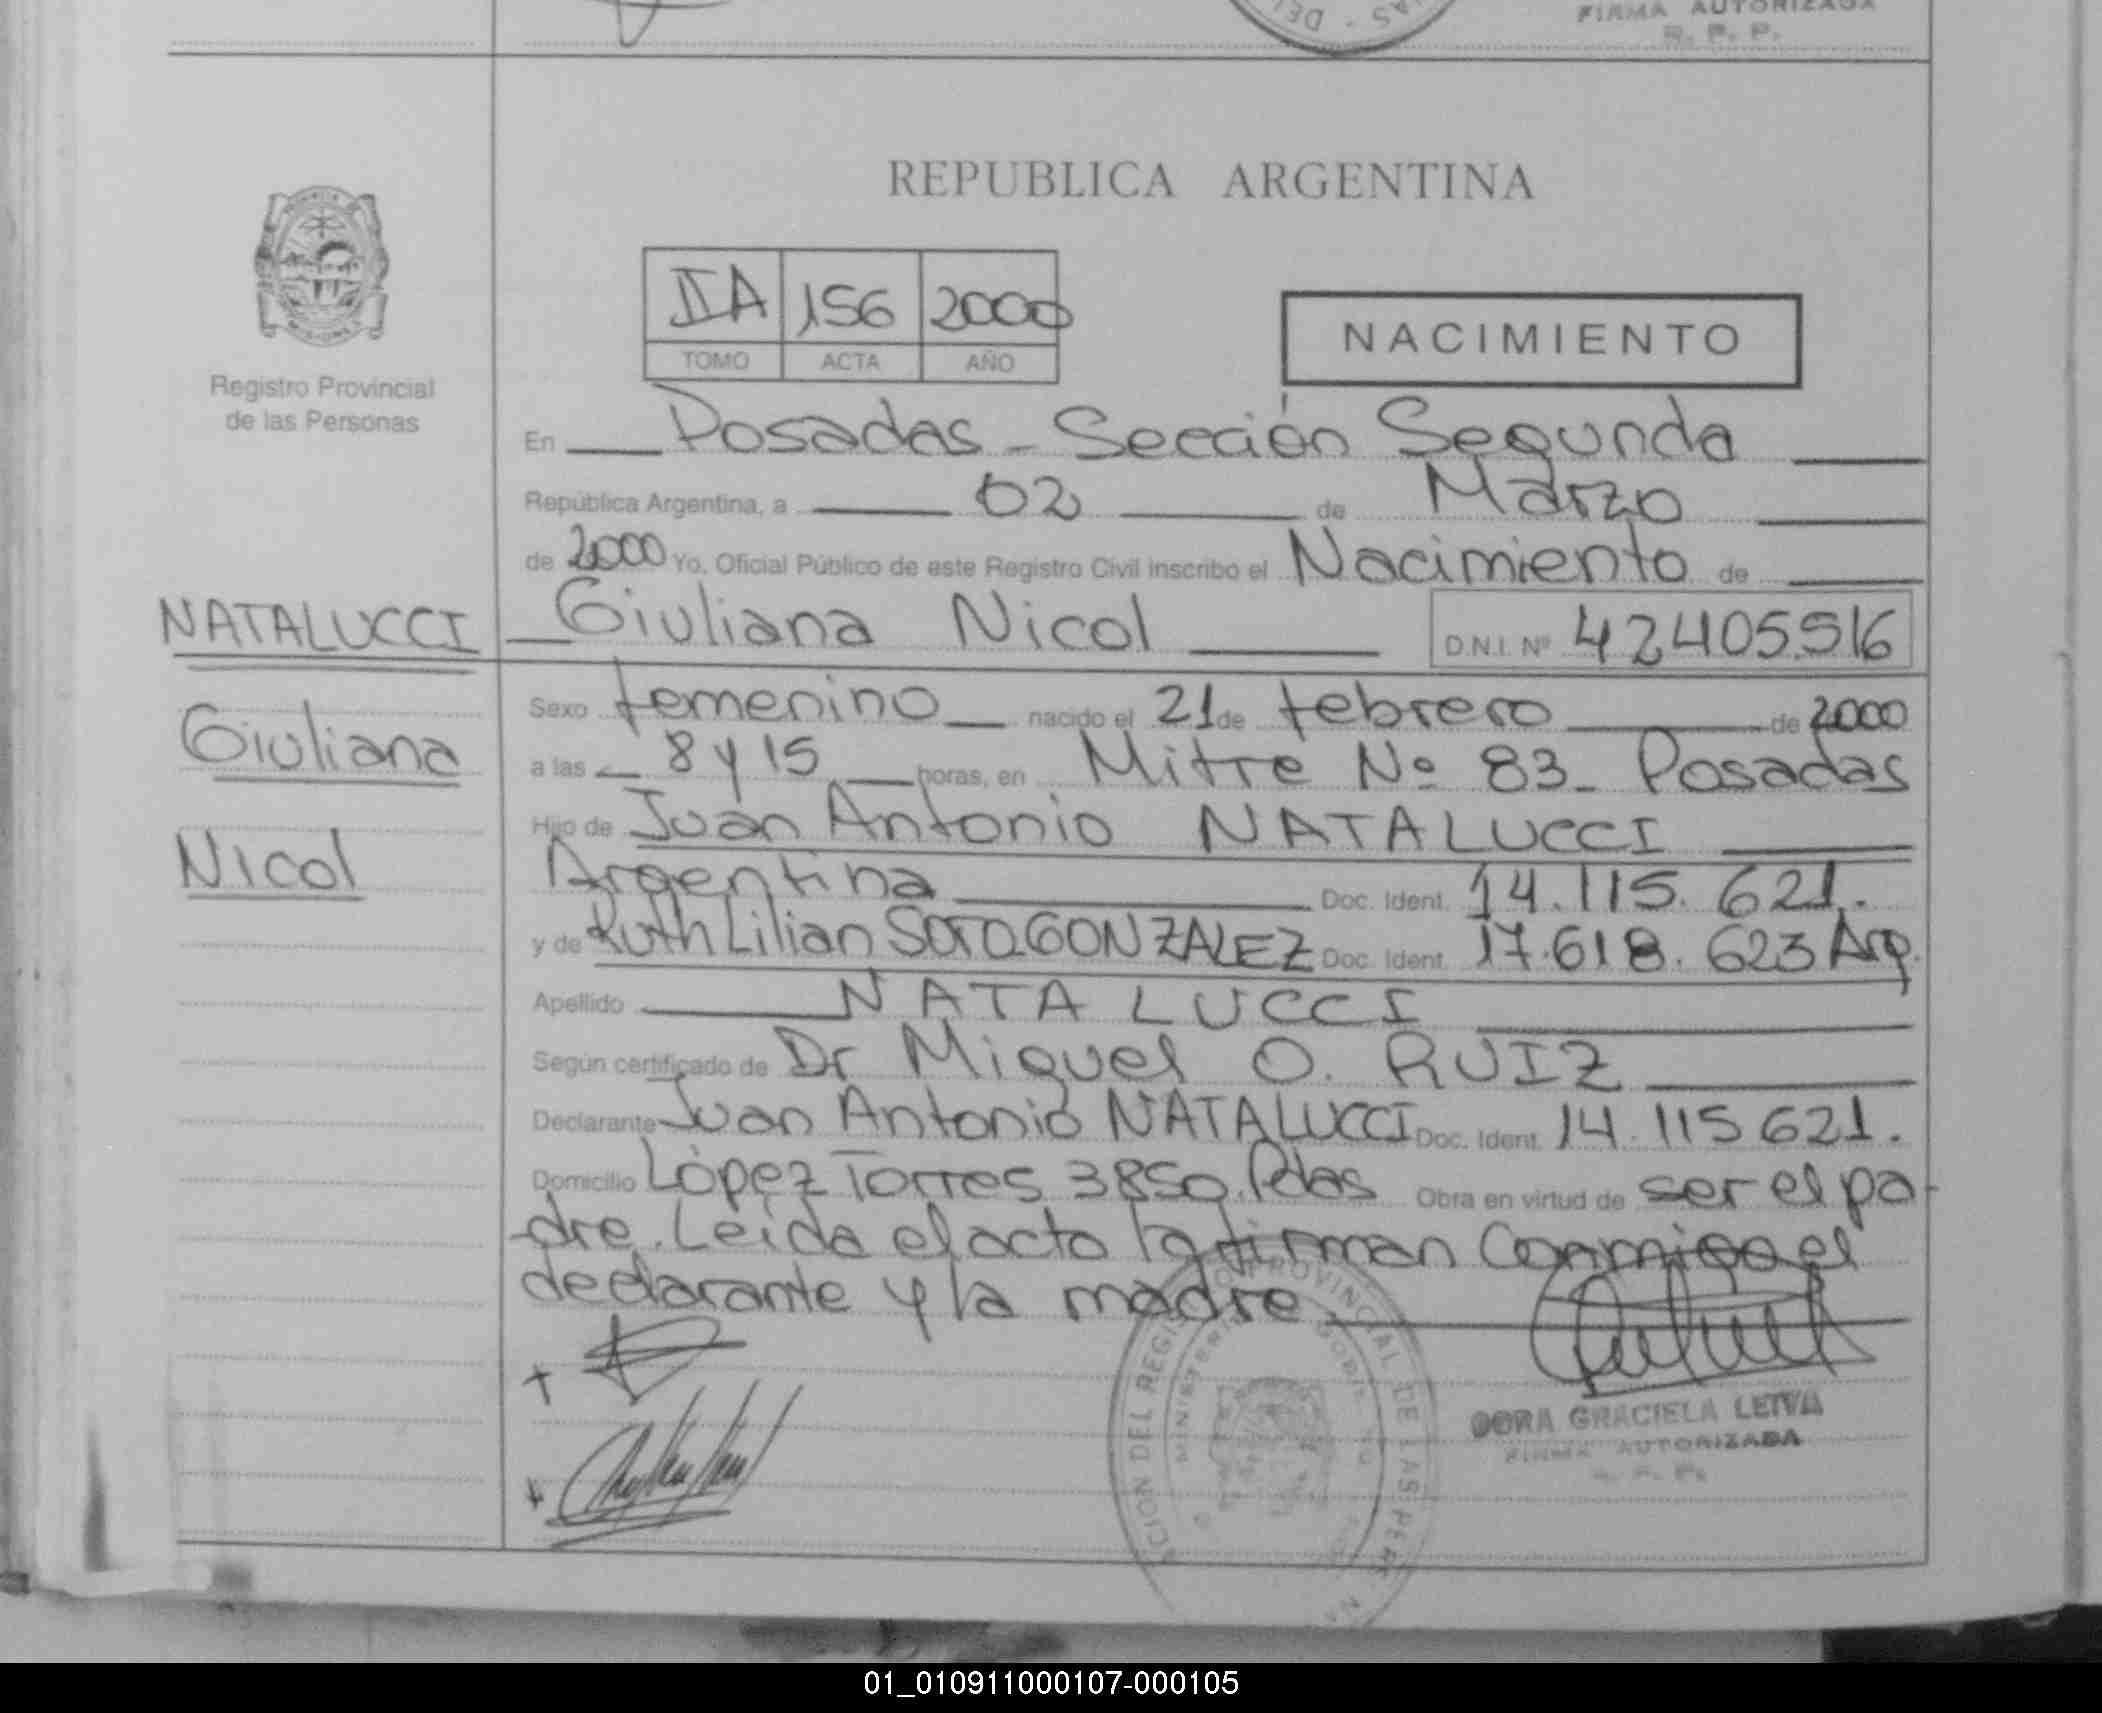 FIRMA AUTORIZADA
R. P. P.
REPUBLICA ARGENTINA
IIA 156 2000
TOMO ACTA AÑO
NACIMIENTO
Registro Provincial
de las Personas
En Posadas - Sección Segunda
República Argentina, a 02 de Marzo
de 2000 Yo, Oficial Público de este Registro Civil inscribo el Nacimiento de
NATALUCCI
Giuliana Nicol D.N.I. Nº 42405.516
Giuliana
Nicol
Sexo femenino nacido el 21 de febrero de 2000
a las 8 y 15 horas, en Mitre Nº 83 - Posadas
Hijo de Juan Antonio NATALUCCI
Argentina Doc. Ident. 14.115.621.
y de Ruth Lilian SOTO GONZALEZ Doc. Ident. 17.618.623 Arg.
Apellido NATALUCCI
Según certificado de Dr Miguel O. RUIZ
Declarante Juan Antonio NATALUCCI Doc. Ident. 14.115621.
Domicilio López Torres 3850. Pdas Obra en virtud de ser el pa-
dre. Leida el acto la firman Conmigo el
declarante y la madre
DORA GRACIELA LEIVA
FIRMA AUTORIZADA
R. P. P.
01_010911000107-000105